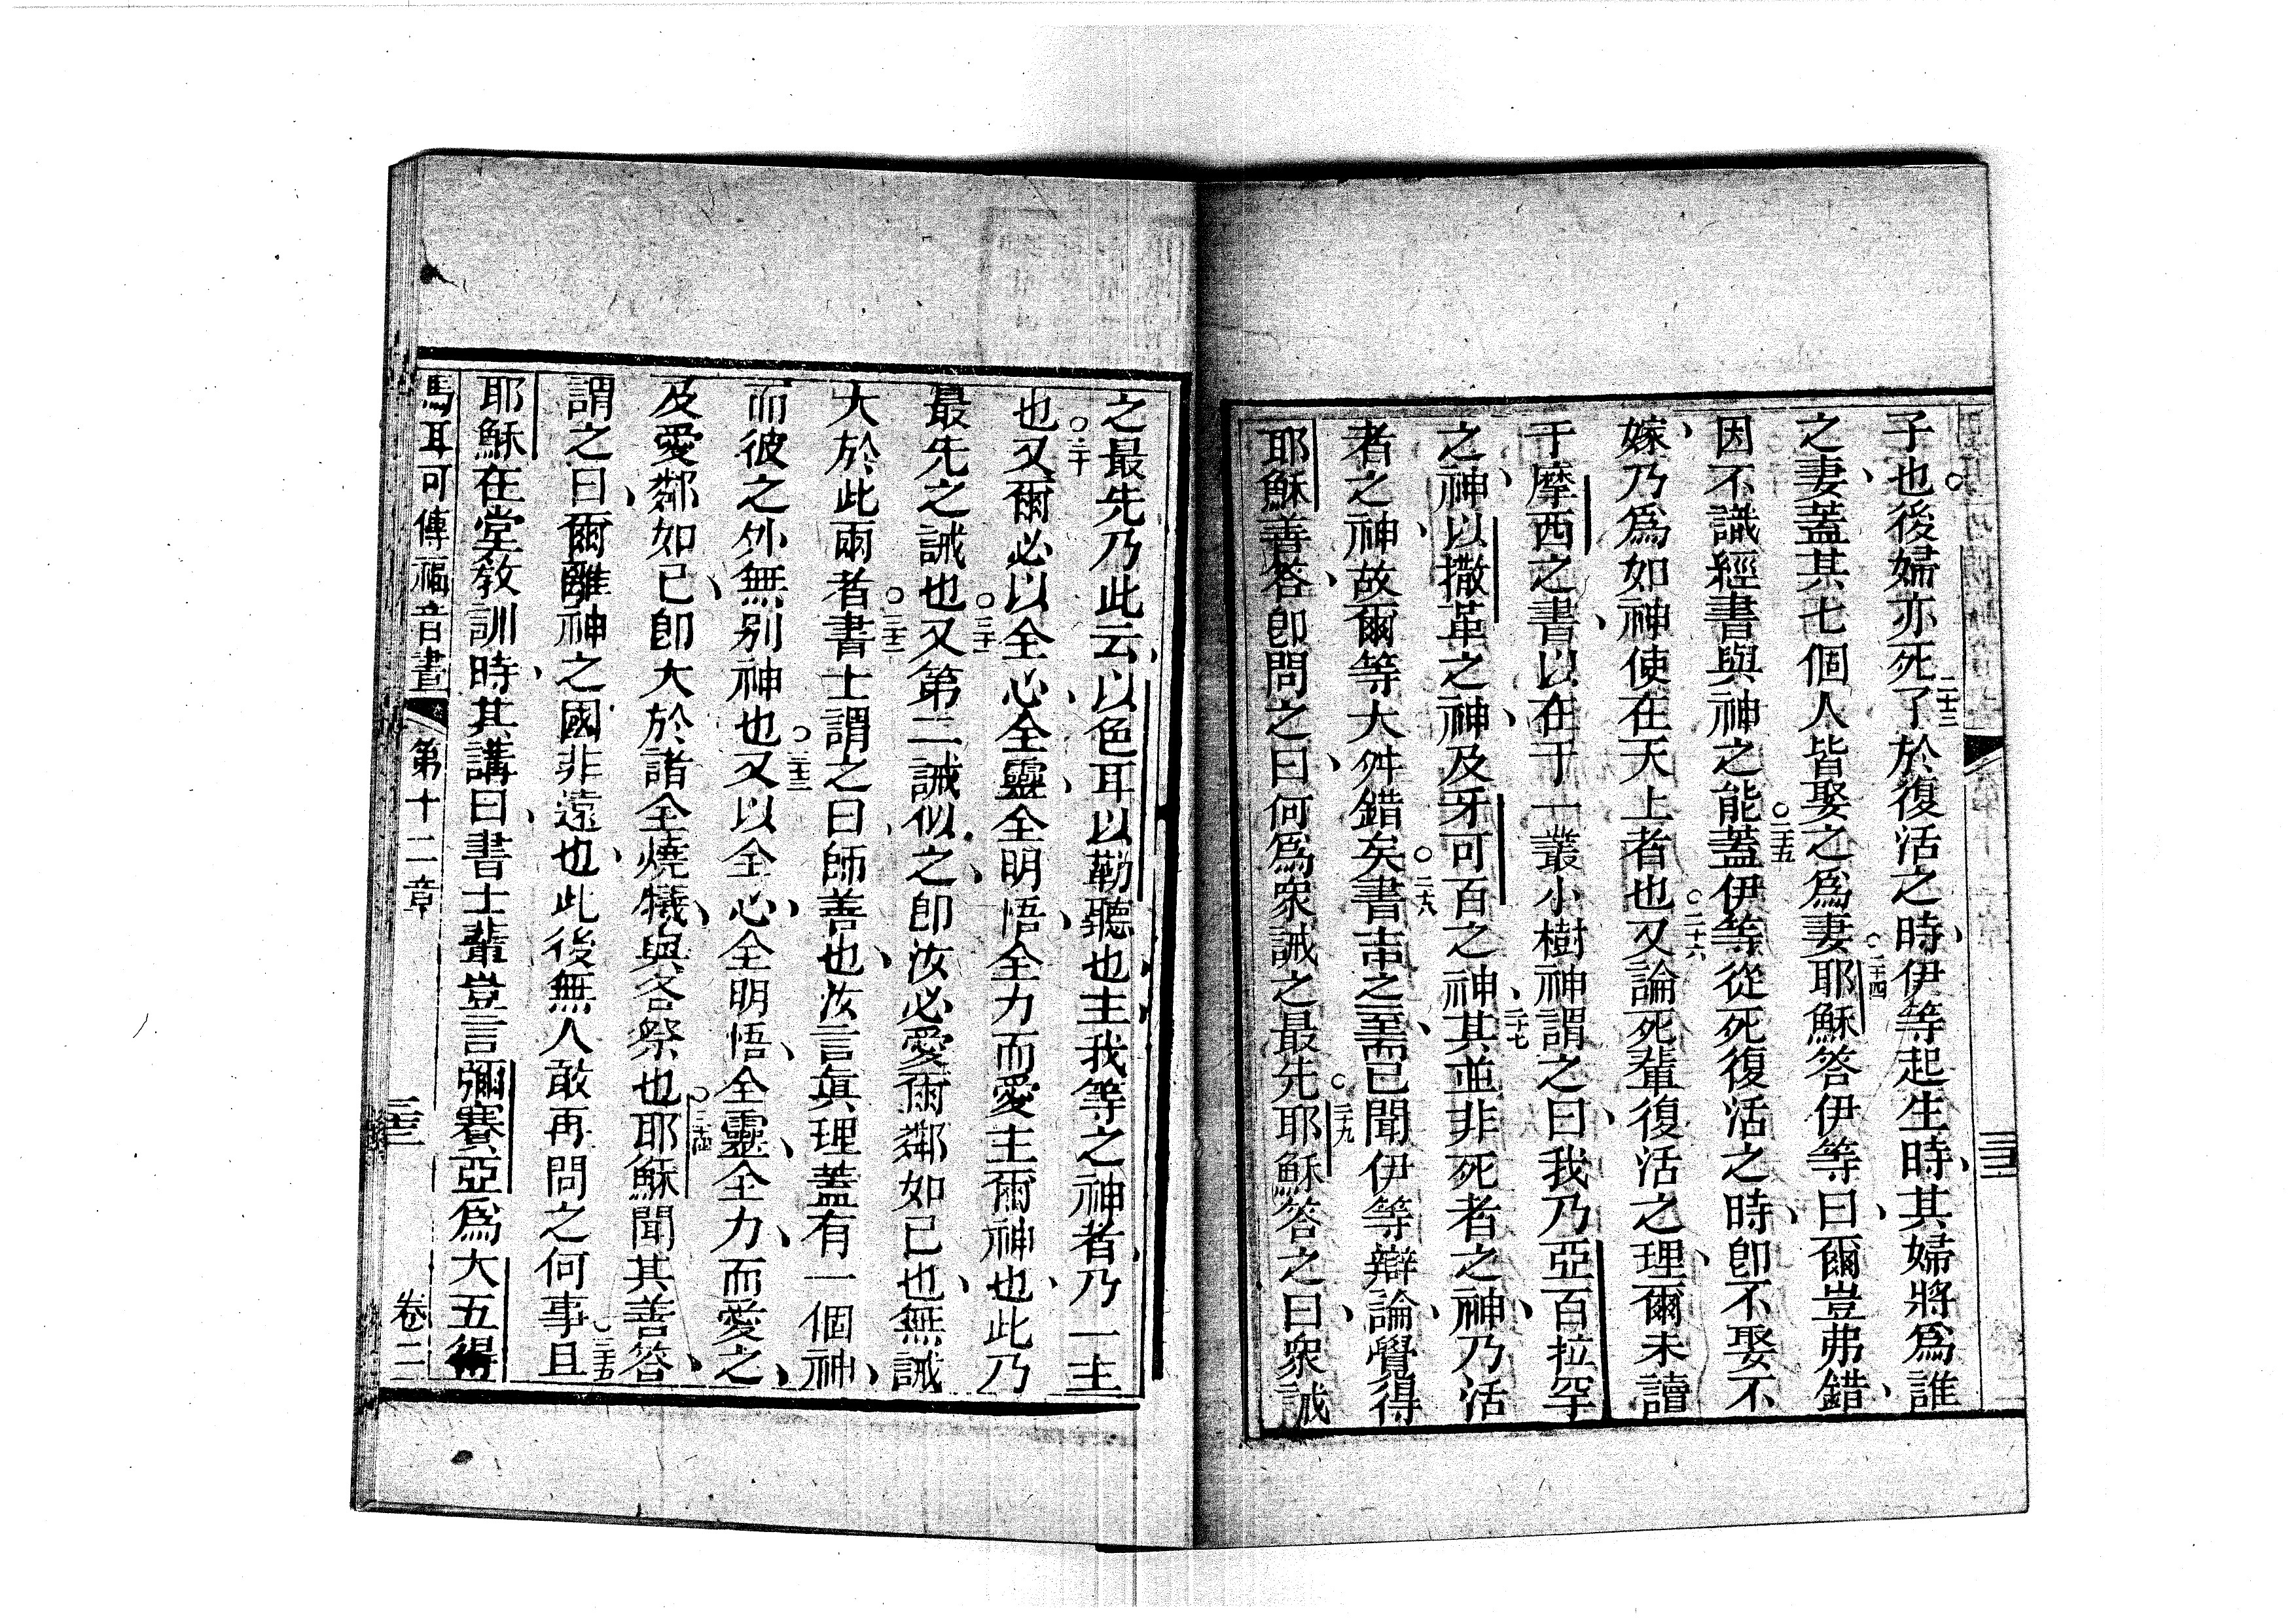 子也○後婦亦死了○二十三於復活之時、伊等起生時、其婦將爲誰
之妻、蓋其七個人皆娶之爲妻○二十四耶穌答伊等曰、爾豈弗錯、
因不識經書與神之能○二十五蓋伊等從死復活之時、卽不娶不
嫁、乃爲如神使在天上者也○二十六又論死輩復活之理、爾未讀
于摩西之書、以在于一叢小樹神謂之曰、我乃亞百拉罕
之神、以撒革之神、及牙可百之神、○二十七其並非死者之神、乃活
者之神、故爾等大舛錯矣○二十八書士之至、而已聞伊等辯論、覺得
耶穌善答、卽問之曰、何爲衆誡之最先○二十九耶穌答之曰、衆誡
之最先乃此云、以色耳以勒聽也、主我等之神者、乃一主
也○三十又爾必以全心、全靈、全明悟、全力而愛主爾神也、此乃
最先之誡也○三十一又第二誡似之、卽汝必愛爾鄰如己也、無誡
大於此兩者○三十二書士謂之曰、師善也、汝言眞理、蓋有一個神、
而彼之外無别神也○三十三又以全心、全明悟、全靈、全力、而愛之、
及愛鄰如己、卽大於諸全燒犧、與各祭也○三十四耶穌聞其善答、
謂之曰、爾離神之國非遠也、此後無人敢再問之何事○三十五且
耶穌在堂教訓時、其講曰、書士輩豈言彌賽亞爲大五得
馬耳可傳福音書 第十二章 三十三 卷二